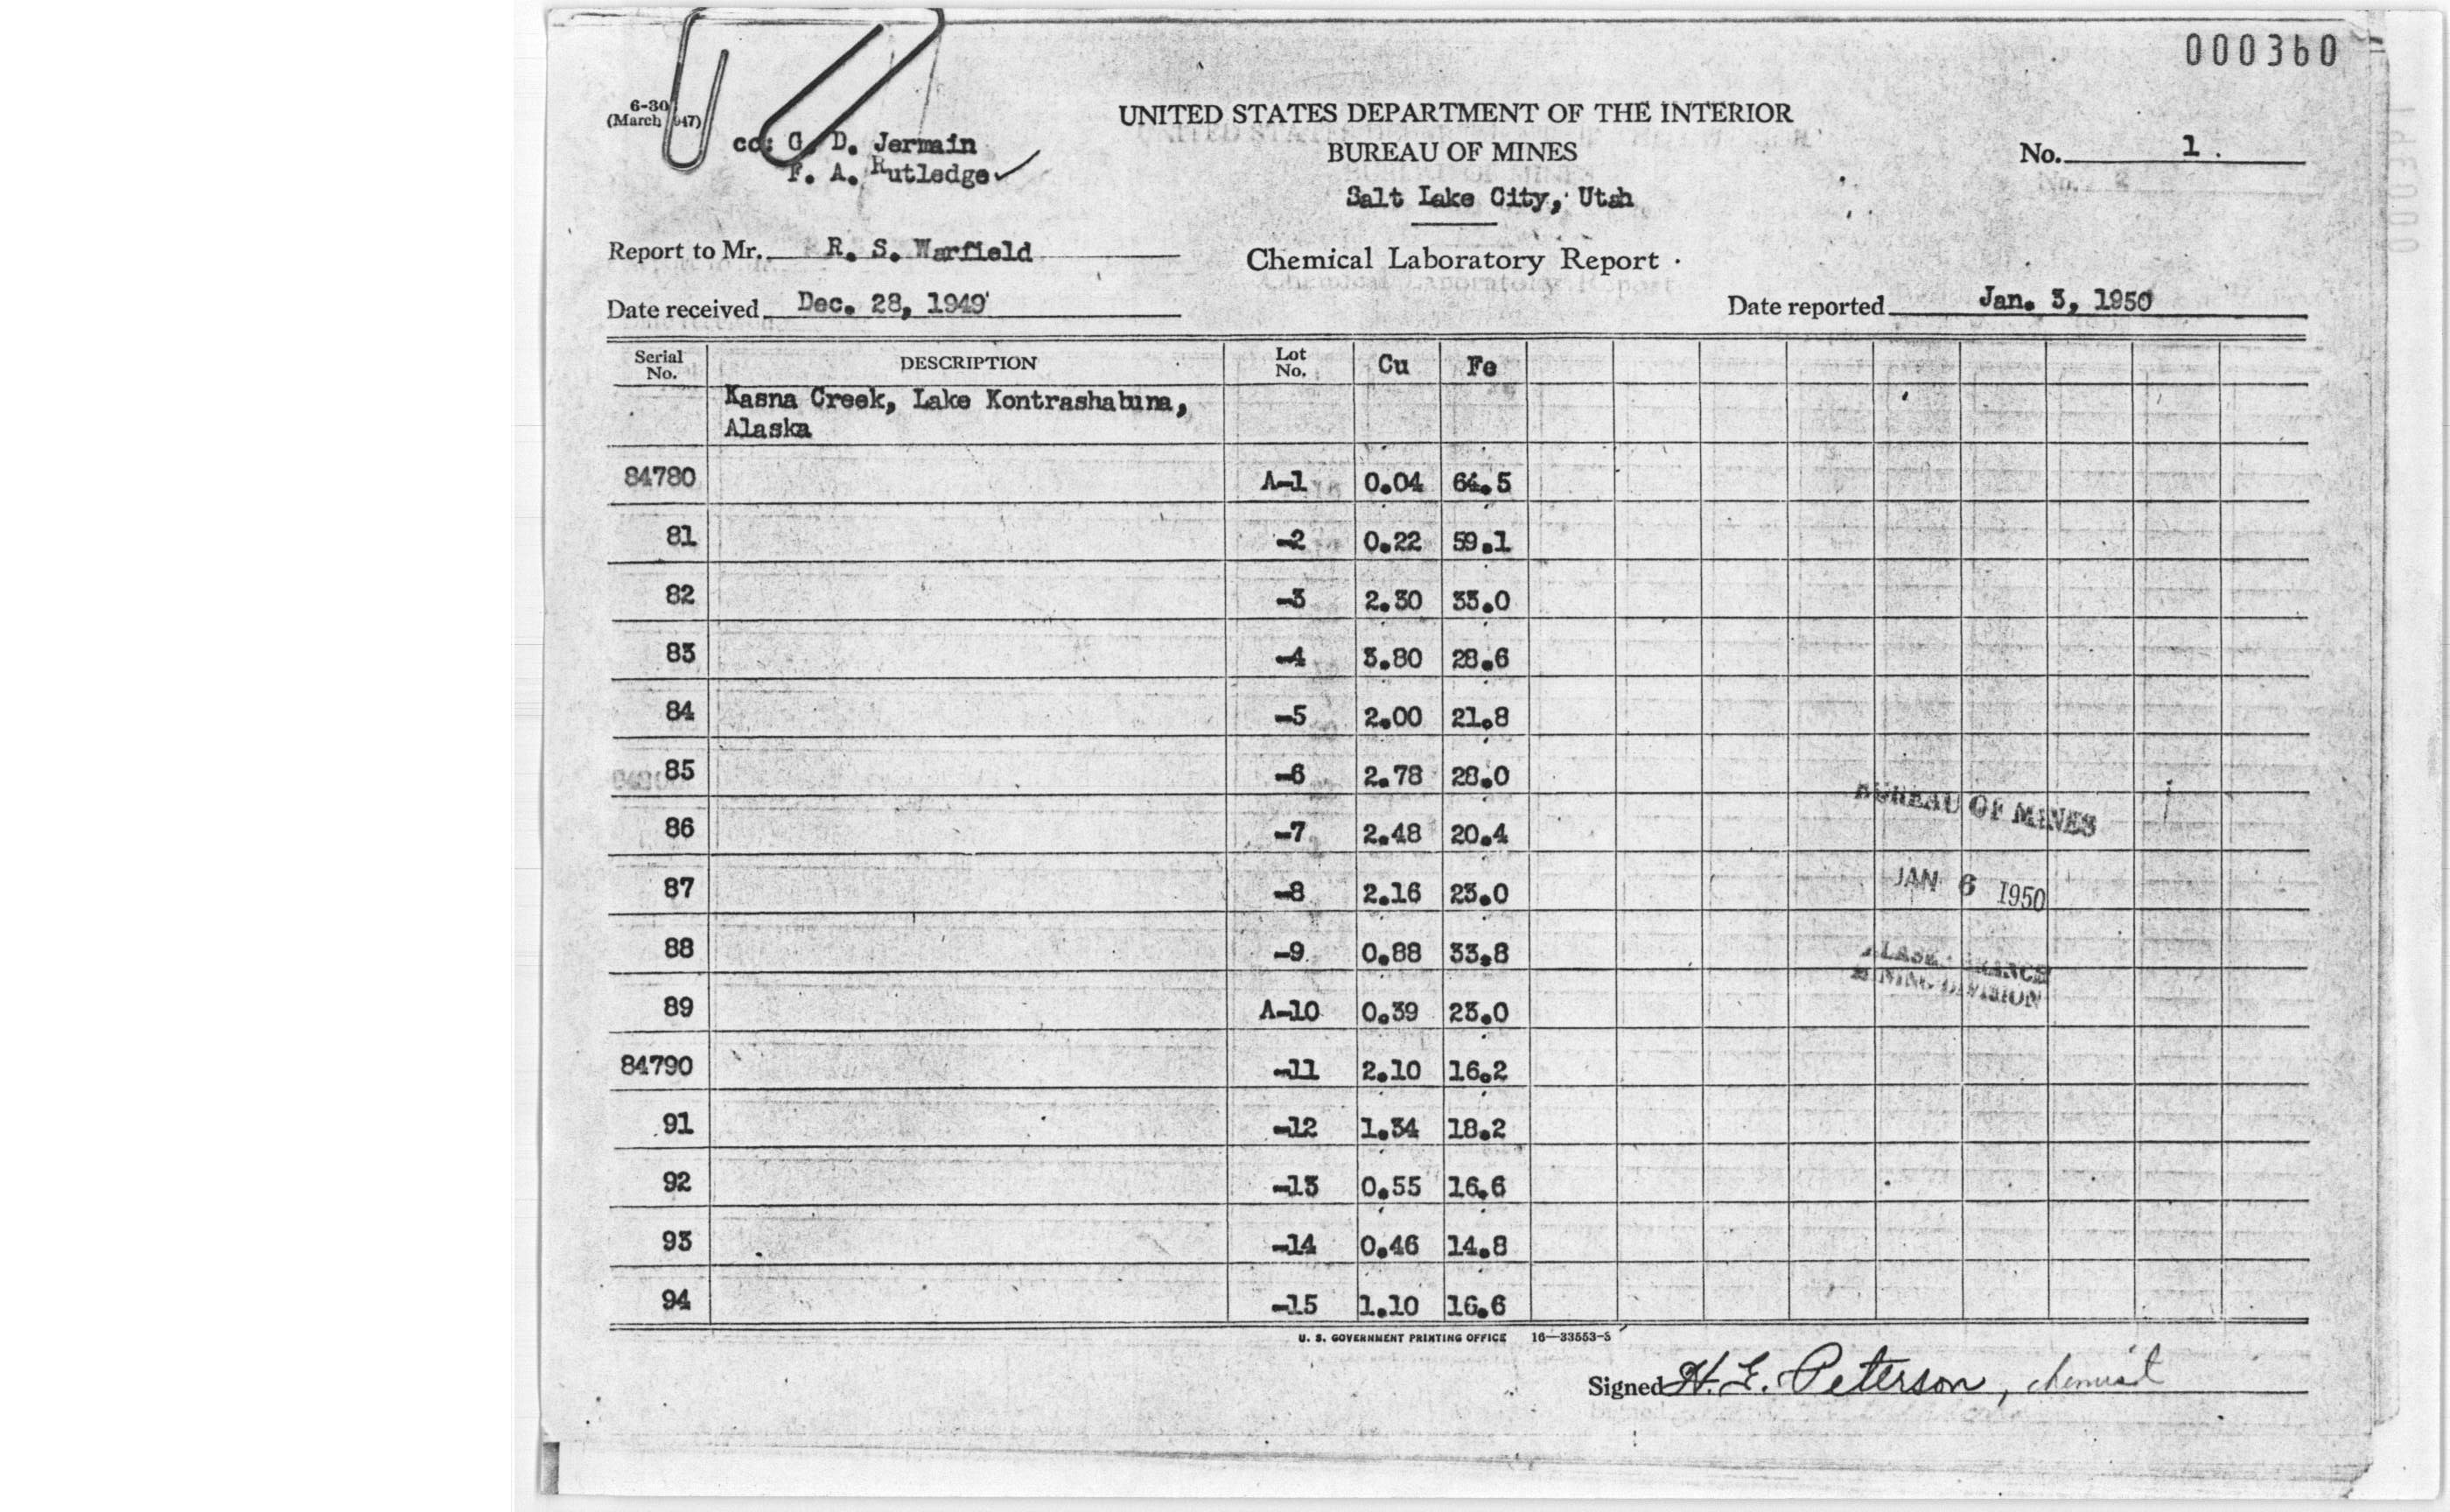 000360
6-30
(March 1947)
cc: G. D. Jermain
F. A. Rutledge
UNITED STATES DEPARTMENT OF THE INTERIOR
BUREAU OF MINES
Salt Lake City, Utah
No. 1.
Report to Mr. R. S. Warfield
Chemical Laboratory Report
Date received Dec. 28, 1949
Date reported Jan. 3, 1950
Serial No. DESCRIPTION Lot No. Cu Fe
Kasna Creek, Lake Kontrashabuna,
Alaska
84780 A-1 0.04 64.5
81 -2 0.22 59.1
82 -3 2.30 33.0
83 -4 3.80 28.6
84 -5 2.00 21.8
85 -6 2.78 28.0
86 -7 2.48 20.4
87 -8 2.16 23.0
88 -9 0.88 33.8
89 A-10 0.39 23.0
84790 -11 2.10 16.2
91 -12 1.34 18.2
92 -13 0.55 16.6
93 -14 0.46 14.8
94 -15 1.10 16.6
BUREAU OF MINES
JAN 6 1950
MINING DIVISION
U. S. GOVERNMENT PRINTING OFFICE 16—33553-S
Signed H. E. Peterson, chemist